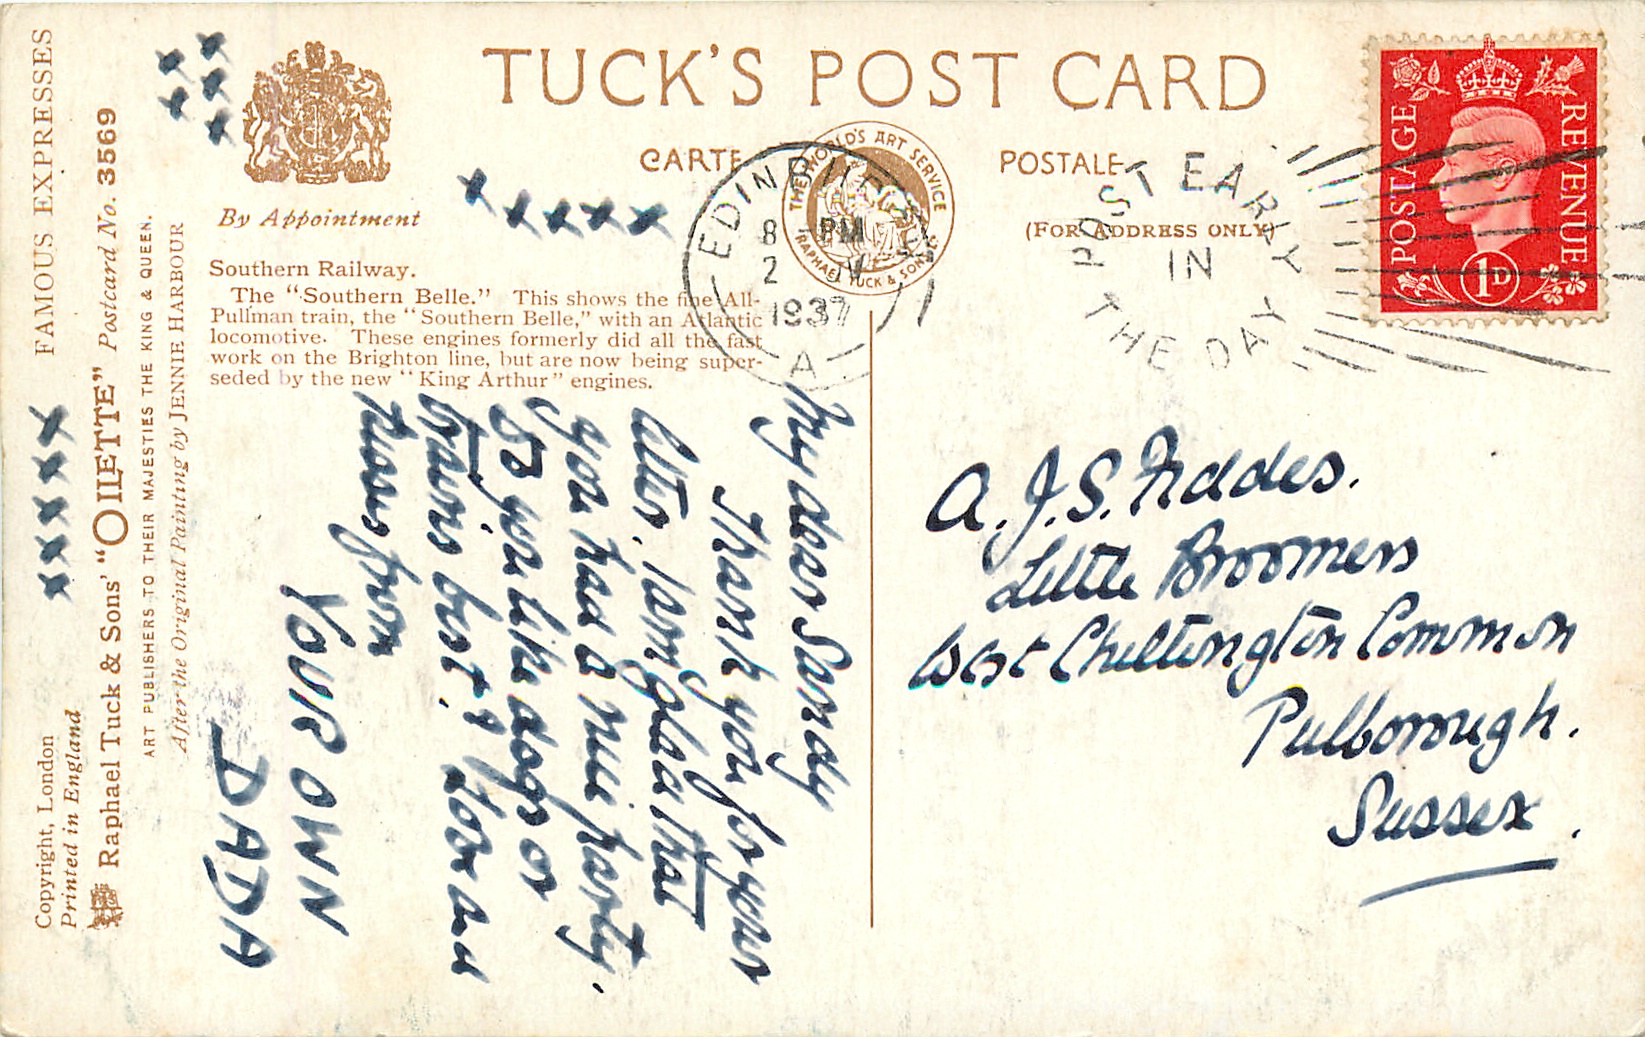 TUCK'S POST CARD
CARTE POSTALE
(FOR ADDRESS ONLY)
THE WORLD'S ART SERVICE
RAPHAEL TUCK & SONS
By Appointment
Southern Railway.
The "Southern Belle." This shows the fine All-
Pullman train, the "Southern Belle," with an Atlantic
locomotive. These engines formerly did all the fast
work on the Brighton line, but are now being super-
seded by the new "King Arthur" engines.
FAMOUS EXPRESSES
Copyright, London
Printed in England
Raphael Tuck & Sons' "OILETTE" Postcard No. 3569
ART PUBLISHERS TO THEIR MAJESTIES THE KING & QUEEN.
After the Original Painting by JENNIE HARBOUR
EDINBURGH
8 - PM
2 IV
1937
A
POST EARLY
IN
THE DAY
POSTAGE
REVENUE
1D
My dear Sandy
Thank you for your
letter. I am glad that
you had a nice party.
Do you like dogs or
trains best? Love and
kisses from
YOUR OWN
DADA
x x x x x
x x x x x
x x x x x
A. J. S. Fiddes.
Little Broomers
West Chiltington Common
Pulborough.
Sussex.